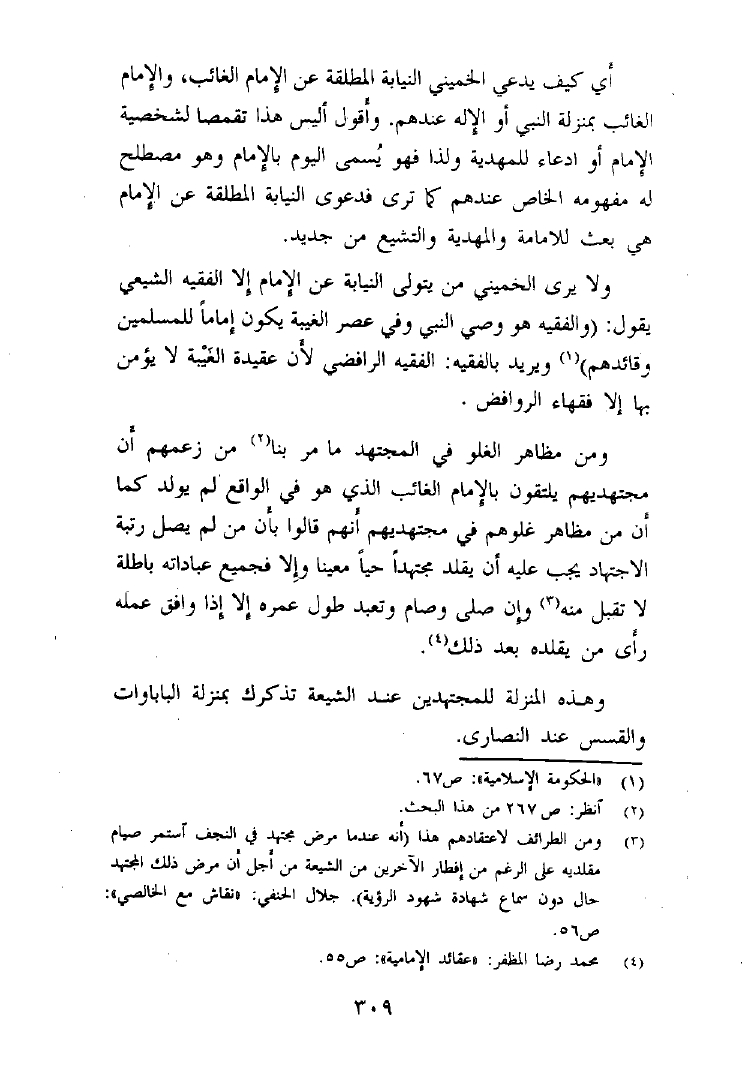 أي كيف يدعي الخميني النيابة المطلقة عن الإمام الغائب، والإمام
الغائب بمنزلة النبي أو الإله عندهم. وأقول أليس هذا تقمصا لشخصية
الإمام أو ادعاء للمهدية ولذا فهو يُسمى اليوم بالإمام وهو مصطلح
له مفهومه الخاص عندهم كما ترى فدعوى النيابة المطلقة عن الإمام
هي بعث للامامة والمهدية والتشيع من جديد.
ولا يرى الخميني من يتولى النيابة عن الإمام إلا الفقيه الشيعي
يقول: (والفقيه هو وصي النبي وفي عصر الغيبة يكون إماماً للمسلمين
وقائدهم)(١) ويريد بالفقيه: الفقيه الرافضي لأن عقيدة الغَيْبة لا يؤمن
بها إلا فقهاء الروافض .
ومن مظاهر الغلو في المجتهد ما مر بنا(٢) من زعمهم أن
مجتهديهم يلتقون بالإمام الغائب الذي هو في الواقع لم يولد كما
أن من مظاهر غلوهم في مجتهديهم أنهم قالوا بأن من لم يصل رتبة
الاجتهاد يجب عليه أن يقلد مجتهداً حياً معينا وإلا فجميع عباداته باطلة
لا تقبل منه(٣) وإن صلى وصام وتعبد طول عمره إلا إذا وافق عمله
رأى من يقلده بعد ذلك(٤).
وهذه المنزلة للمجتهدين عند الشيعة تذكرك بمنزلة الباباوات
والقسس عند النصارى.
(١) «الحكومة الإسلامية»: ص٦٧.
(٢) أنظر: ص ٢٦٧ من هذا البحث.
(٣) ومن الطرائف لاعتقادهم هذا (أنه عندما مرض مجتهد في النجف آستمر صيام
مقلديه على الرغم من إفطار الآخرين من الشيعة من أجل أن مرض ذلك المجتهد
حال دون سماع شهادة شهود الرؤية). جلال الحنفي: «نقاش مع الخالصي»:
ص٥٦.
(٤) محمد رضا المظفر: «عقائد الإمامية»: ص٥٥.
٣٠٩